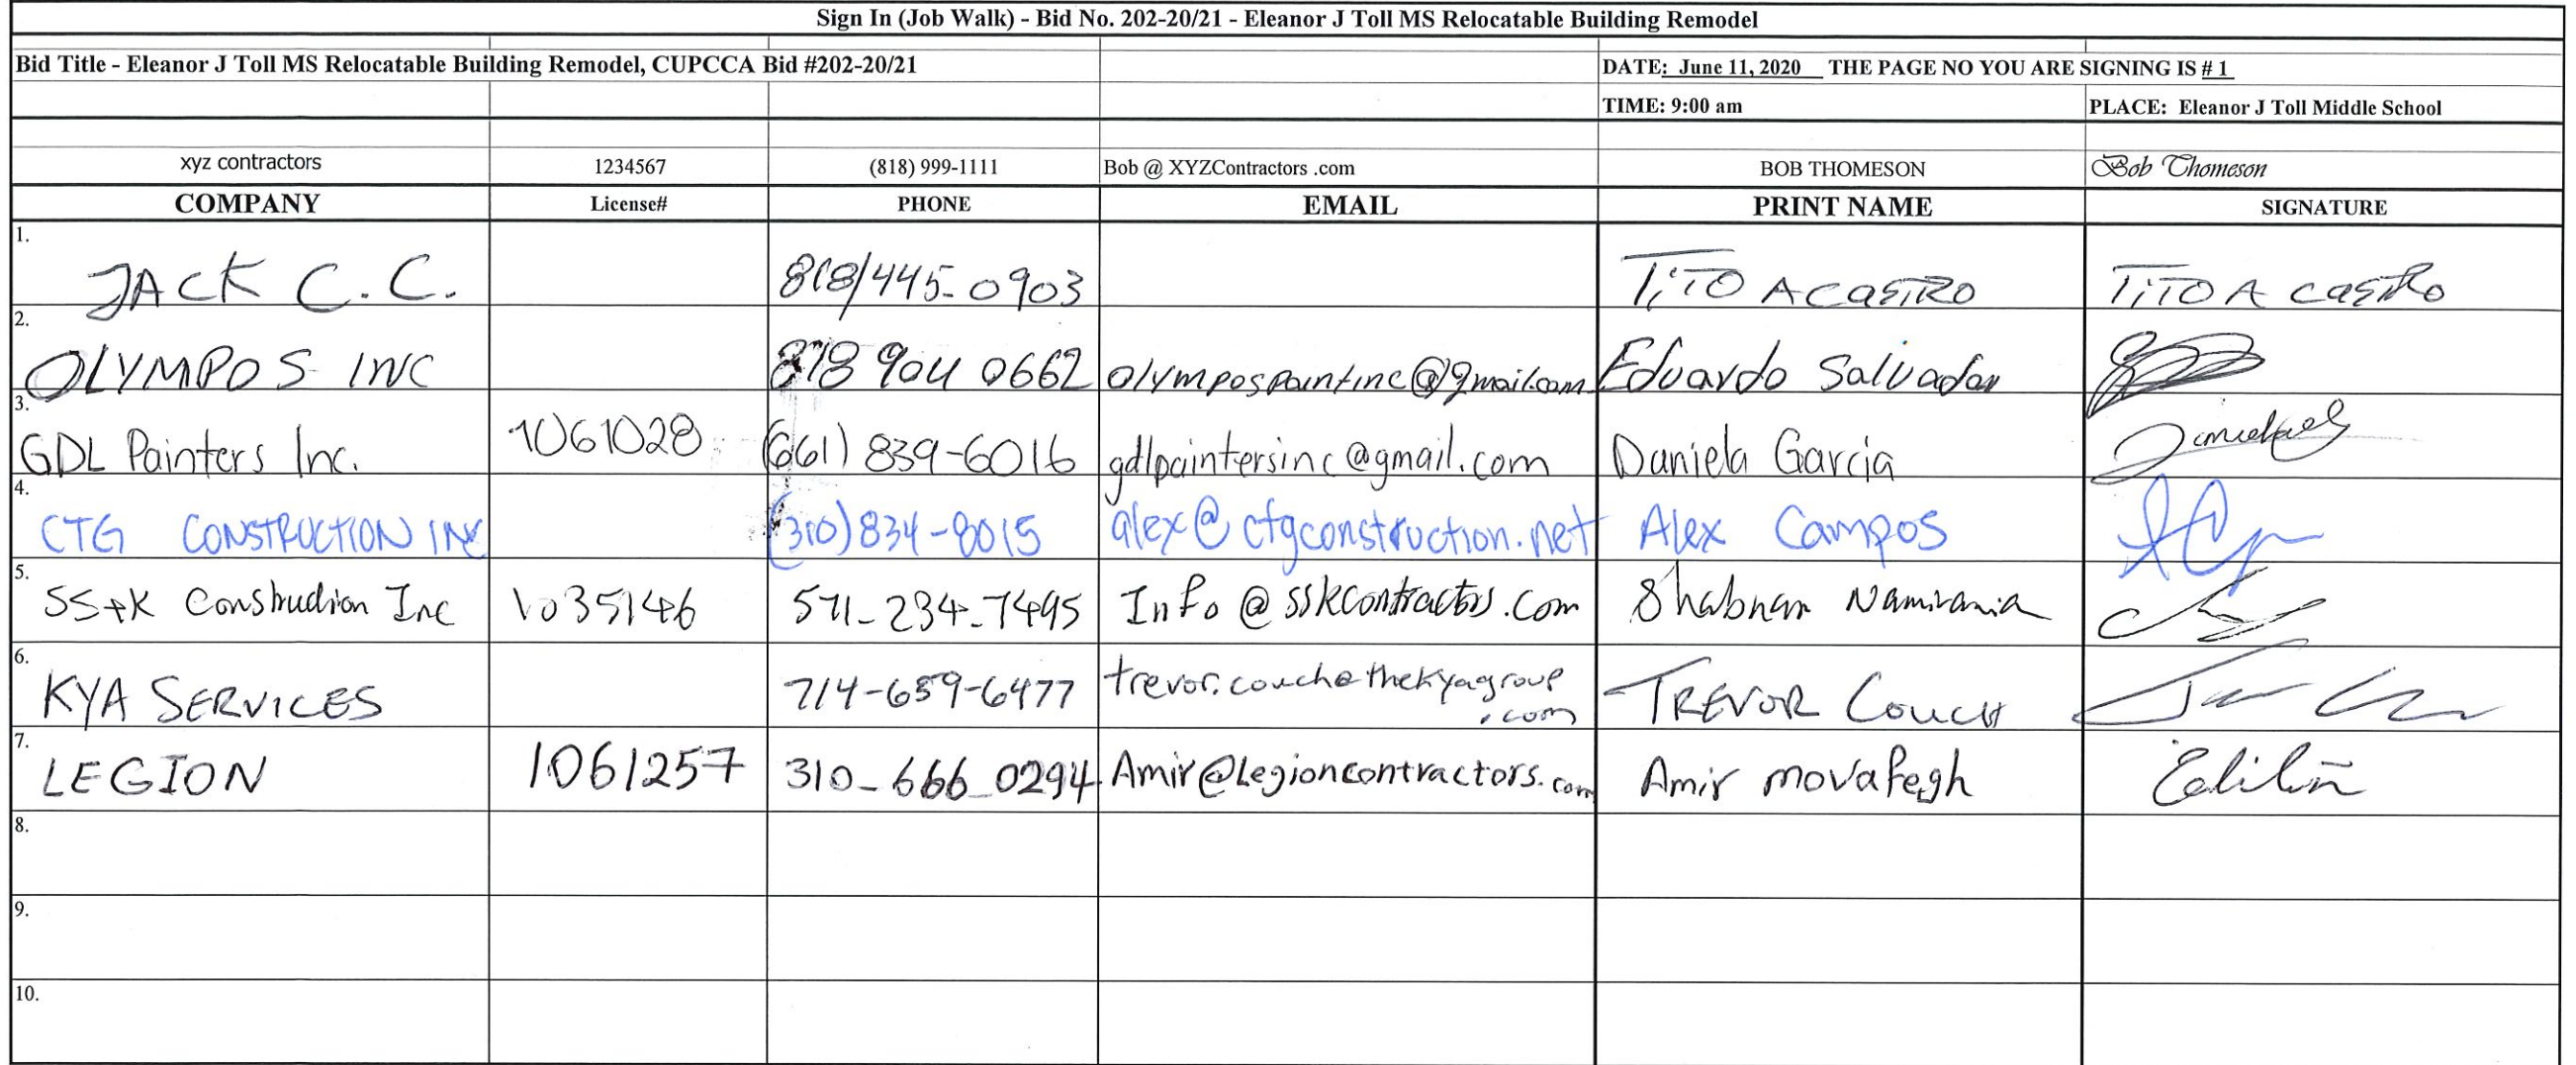 Sign In (Job Walk) - Bid No. 202-20/21 - Eleanor J Toll MS Relocatable Building Remodel
Bid Title - Eleanor J Toll MS Relocatable Building Remodel, CUPCCA Bid #202-20/21 DATE: June 11, 2020 THE PAGE NO YOU ARE SIGNING IS # 1
TIME: 9:00 am PLACE: Eleanor J Toll Middle School
xyz contractors 1234567 (818) 999-1111 Bob @ XYZContractors .com BOB THOMESON Bob Thomeson
COMPANY License# PHONE EMAIL PRINT NAME SIGNATURE
1. JACK C.C. 818/445-0903 TiTO A CASTRO TiTO A CASTRO
2. OLYMPOS INC 818 904 0662 olympospaintinc@gmail.com Eduardo Salvador
3. GDL Painters Inc. 1061028 (661) 839-6016 gdlpaintersinc@gmail.com Daniela Garcia
4. CTG CONSTRUCTION INC (310) 834-8015 alex@ctgconstruction.net Alex Campos
5. SS+K Construction Inc 1035146 571-234-7495 Info @ sskcontractors.com Shabnam Namirania
6. KYA SERVICES 714-659-6477 trevor.couch@thekyagroup
.com TREVOR COUCH
7. LEGION 1061257 310-666-0294 Amir@Legioncontractors.com Amir movafegh
8.
9.
10.